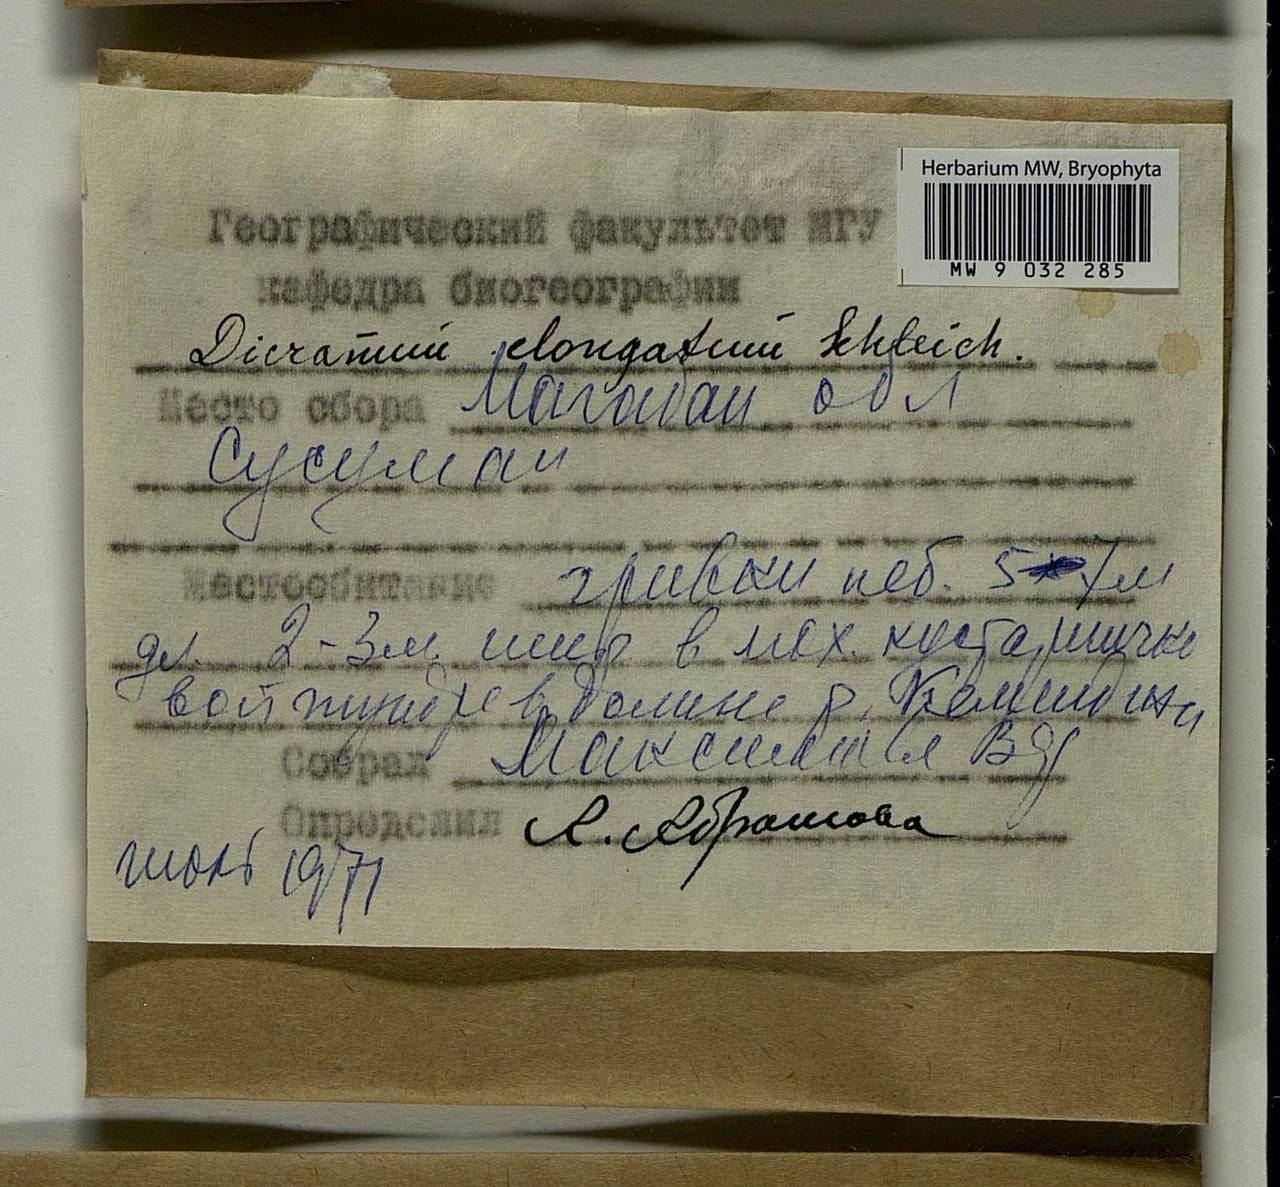 Herbarium MW, Bryophyta
MW 9 032 285
Географический факультет МГУ
кафедра биогеографии
Dicranum elongatum Schleich.
Место сбора Магадан обл
Сусуман
Местообитание гривки неб. 5-7м
дл. 2-3м шир в мох. кустарничко
вой тундре в долине р.
Собрал
Определил А. Абрамова
июль 1971